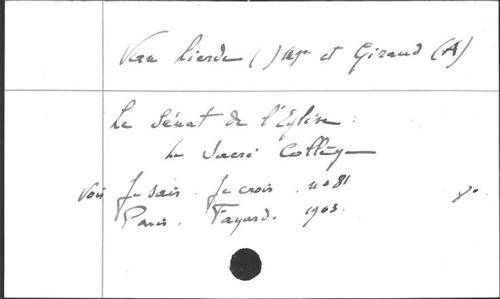 Van Lierde ( ) Mgr. et Giraud (A)
Le Sénat de l'Eglise :
Le Sacré Collège
Voir Je sais. Je crois. no 81
Paris. Fayard. 1963. 8°